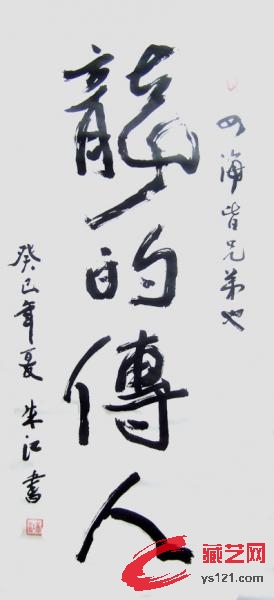 四海皆兄弟也
龍的傳人
癸巳年夏 朱江書
藏艺网
ys121.com